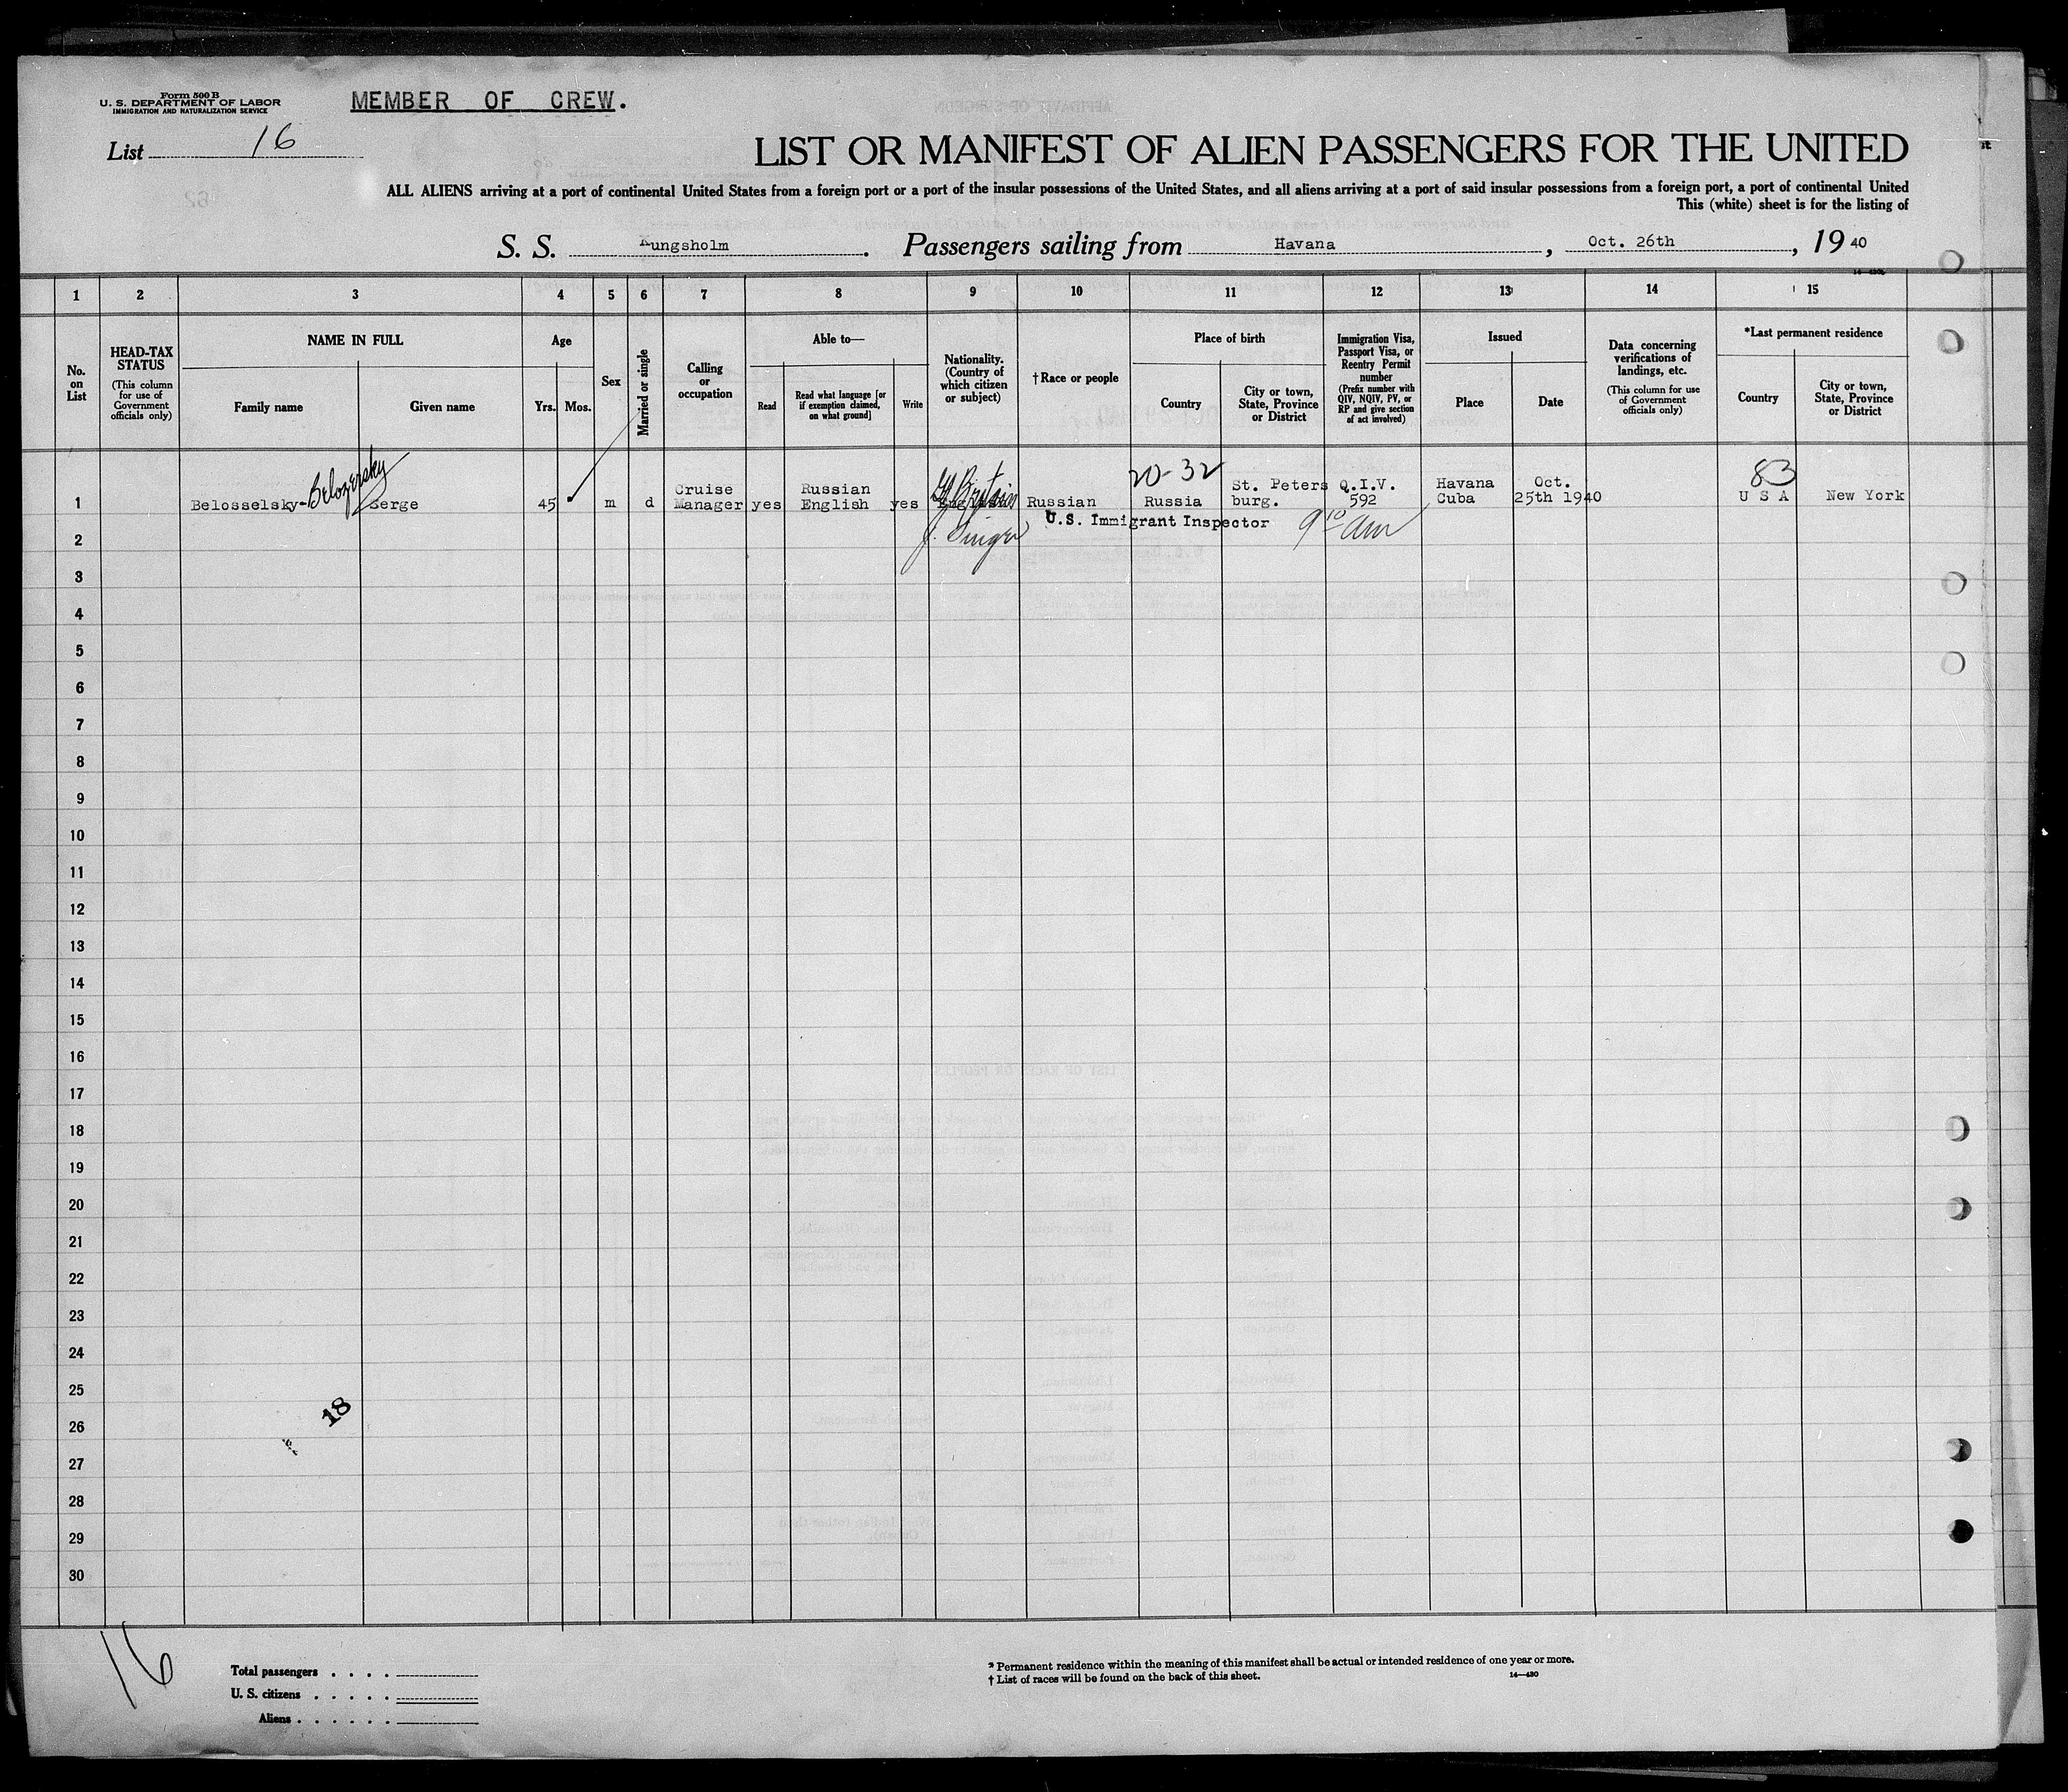 Form 500 B
U. S. DEPARTMENT OF LABOR
IMMIGRATION AND NATURALIZATION SERVICE
MEMBER OF CREW.
List 16
LIST OR MANIFEST OF ALIEN PASSENGERS FOR THE UNITED
ALL ALIENS arriving at a port of continental United States from a foreign port or a port of the insular possessions of the United States, and all aliens arriving at a port of said insular possessions from a foreign port, a port of continental United
This (white) sheet is for the listing of
S. S. Kungsholm. Passengers sailing from Havana, Oct. 26th, 19 40
1 2 3 4 5 6 7 8 9 10 11 12 13 14 15
No. on List
HEAD-TAX STATUS
(This column for use of Government officials only)
NAME IN FULL
Family name
Given name
Age
Yrs. Mos.
Sex
Married or single
Calling or occupation
Able to—
Read
Read what language [or if exemption claimed, on what ground]
Write
Nationality. (Country of which citizen or subject)
†Race or people
Place of birth
Country
City or town, State, Province or District
Immigration Visa, Passport Visa, or Reentry Permit number
(Prefix number with QIV, NQIV, PV, or RP and give section of act involved)
Issued
Place
Date
Data concerning verifications of landings, etc.
(This column for use of Government officials only)
*Last permanent residence
Country
City or town, State, Province or District
20-32
83
1 Belosselsky-Belozersky Serge 45 m d Cruise Manager yes Russian English yes Gt Britain Russian Russia St. Peters burg. Q.I.V. 592 Havana Cuba Oct. 25th 1940 U S A New York
J. Singer U.S. Immigrant Inspector 9 10 am
2
3
4
5
6
7
8
9
10
11
12
13
14
15
16
17
18
19
20
21
22
23
24
25
26
27
28
29
30
18
16
Total passengers . . . .
U. S. citizens . . . . .
Aliens . . . . . .
* Permanent residence within the meaning of this manifest shall be actual or intended residence of one year or more.
† List of races will be found on the back of this sheet.
14—430